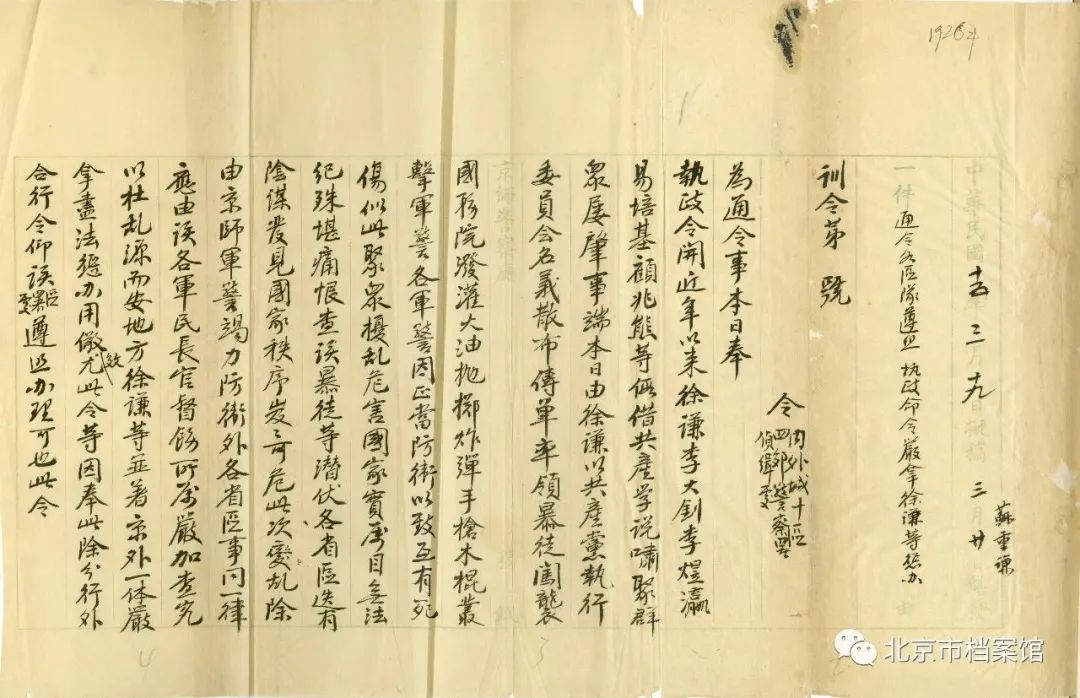 1926年
中華民國十五 三月十九日擬稿 三月廿日
蘇重謙
一件通令各區隊遵照執政命令嚴拿徐謙等懲办由
訓令第 號
令內外城十區
四郊警察署
偵緝隊
為通令事本日奉
執政令開近年以来徐謙李大釗李煜瀛
易培基顧兆熊等假借共產学説嘯聚群
眾屡肇事端本日由徐謙以共產黨執行
委員会名義散布傳单率領暴徒闖襲
國務院潑灌火油抛擲炸彈手槍木棍叢
擊軍警各軍警因正當防衛以致互有死
傷似此聚眾擾乱危害國家實属目無法
紀殊堪痛恨查该暴徒等潜伏各省區迭有
陰謀发見國家秩序岌岌可危此次变乱除
由京師軍警竭力防衛外各省區事同一律
應由该各軍民長官督飭所属嚴加查究
以杜乱源而安地方徐謙等並著京外一体嚴
拿盡法懲办用儆效尤此令等因奉此除分行外
合行令仰该區署隊遵照办理可也此令
京師警察廳
北京市档案馆